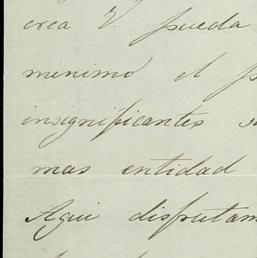 crea V. pueda
minimo el
insignificantes
mas entidad
Aqui disfrutam